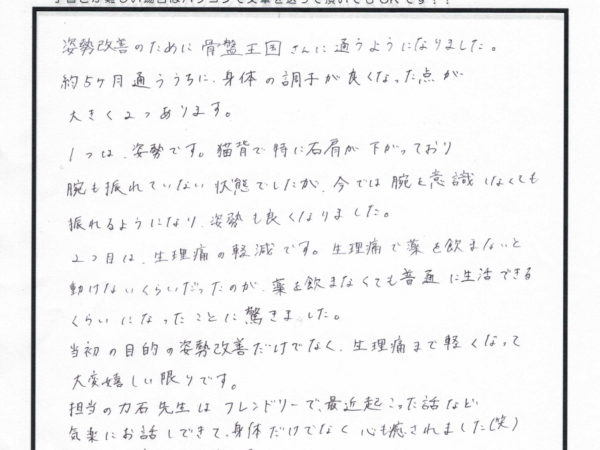 姿勢改善のために骨盤王国さんに通うようになりました。
約5ヶ月通ううちに、身体の調子が良くなった点が
大きく2つあります。
1つは、姿勢です。猫背で特に右肩が下がっており
腕も振れていない状態でしたが、今では腕を意識しなくても
振れるようになり、姿勢も良くなりました。
2つ目は、生理痛の軽減です。生理痛で薬を飲まないと
動けないくらいだったのが、薬を飲まなくても普通に生活できる
くらいになったことに驚きました。
当初の目的の姿勢改善だけでなく、生理痛まで軽くなって
大変嬉しい限りです。
担当の力石先生はフレンドリーで、最近起こった話など
気楽にお話しできて、身体だけでなく心も癒されました(笑)